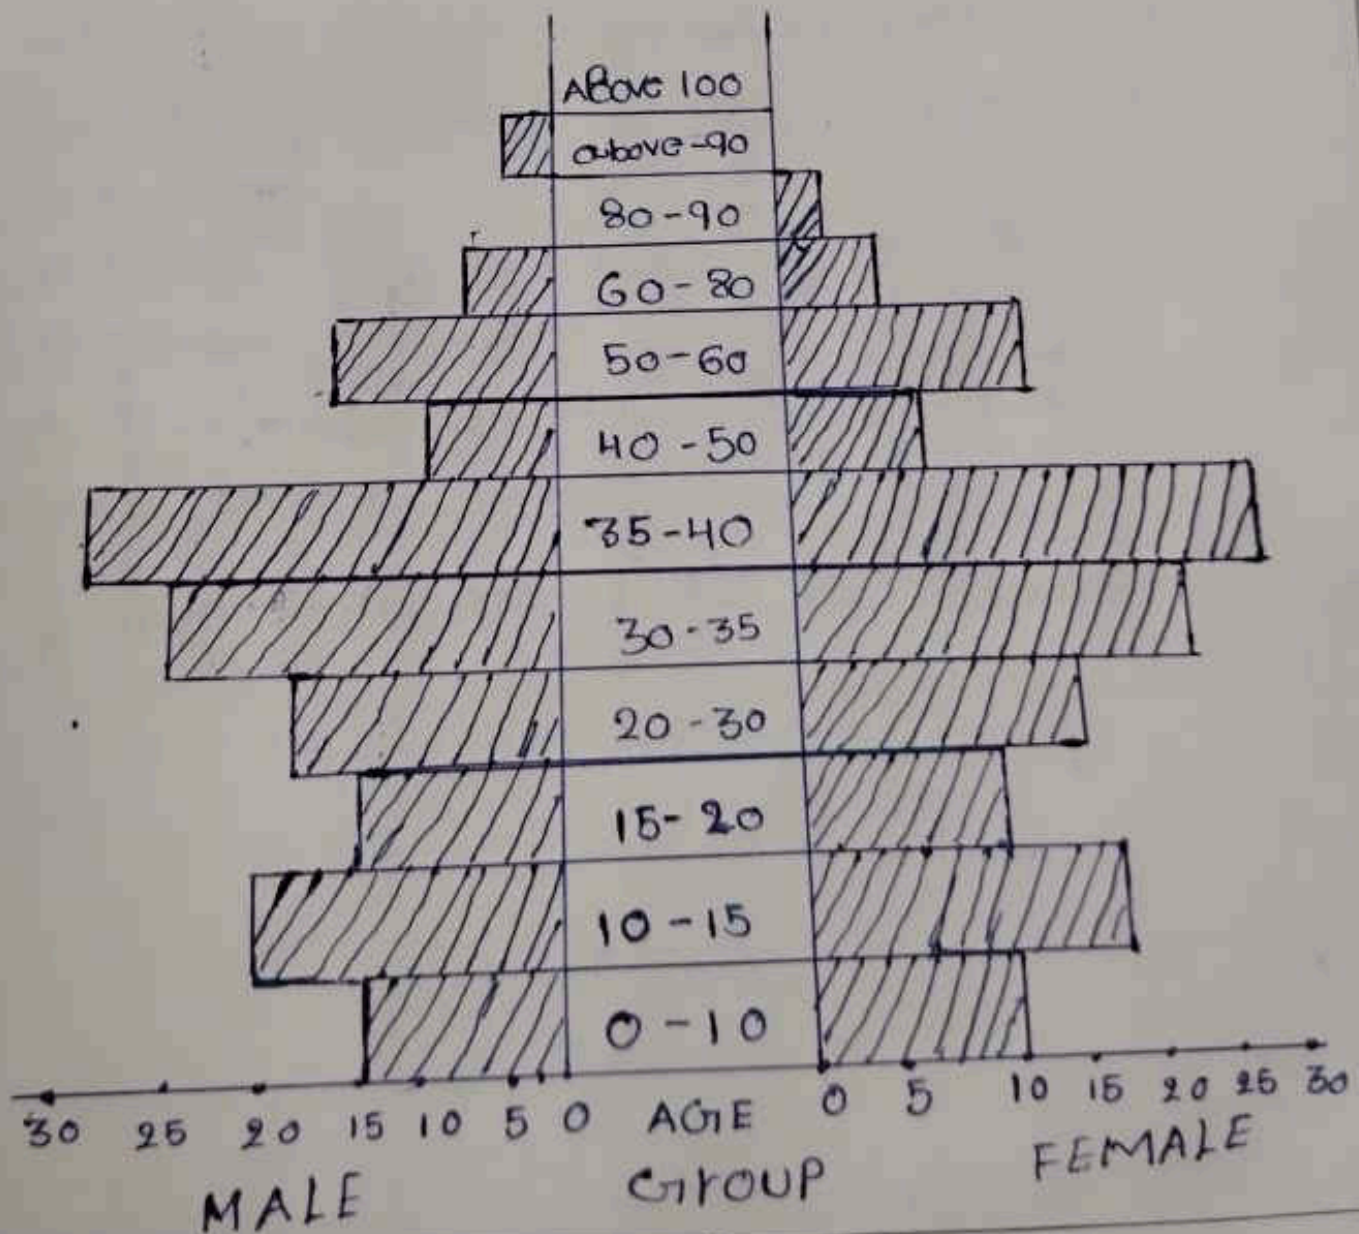 ABove 100
above-90
80-90
60-80
50-60
40-50
35-40
30-35
20-30
15-20
10-15
0-10
30 25 20 15 10 5 0 AGE 0 5 10 15 20 25 30
MALE GrOUP FEMALE